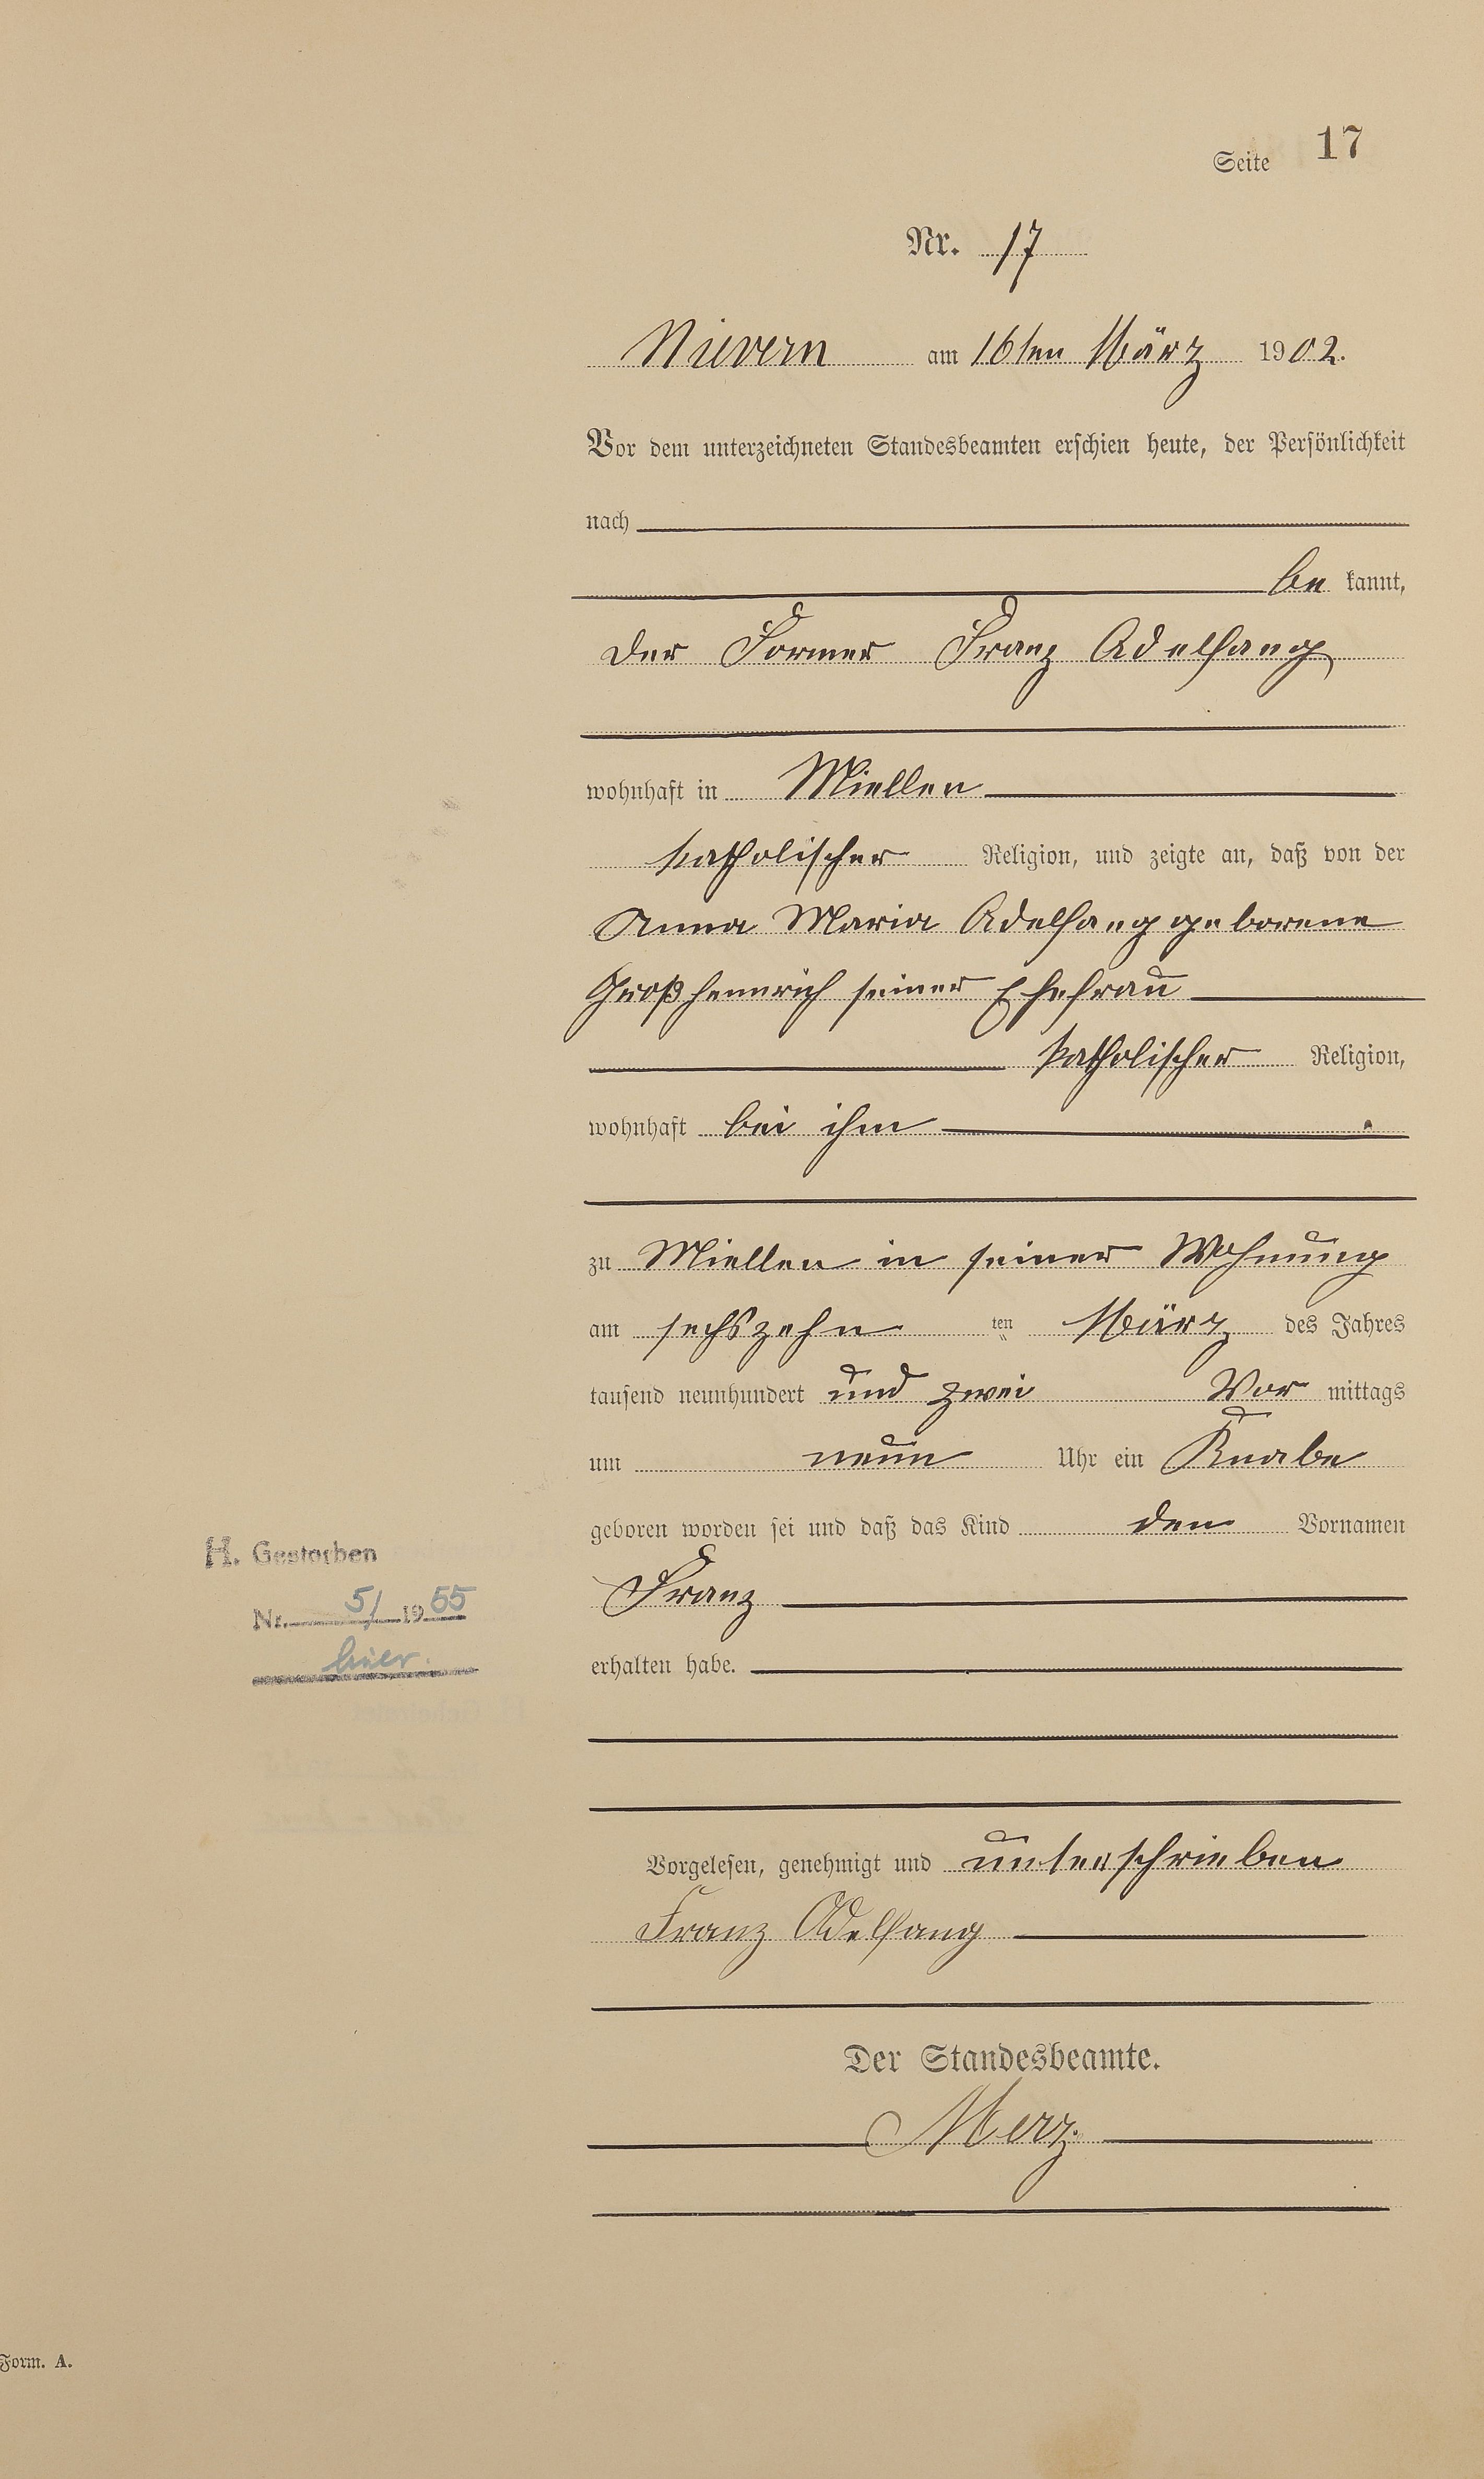 Seite 17
Nr. 17
Nievern am 16ten März 1902.
Vor dem unterzeichneten Standesbeamten erschien heute, der Persönlichkeit
nach
be kannt,
der Former Franz Adelfang
wohnhaft in Miellen
katholischer Religion, und zeigte an, daß von der
Anna Maria Adelfang geborene
Großhennrich seiner Ehefrau
katholischer Religion,
wohnhaft bei ihm
zu Miellen in seiner Wohnung
am sechszehn ten März des Jahres
tausend neunhundert und zwei Vor mittags
um neun Uhr ein Knabe
geboren worden sei und daß das Kind den Vornamen
H. Gestorben
Franz
Nr. 5/ 1955
hier.
erhalten habe.
Vorgelesen, genehmigt und unterschrieben
Franz Adelfang
Der Standesbeamte.
Merz.
Form. A.